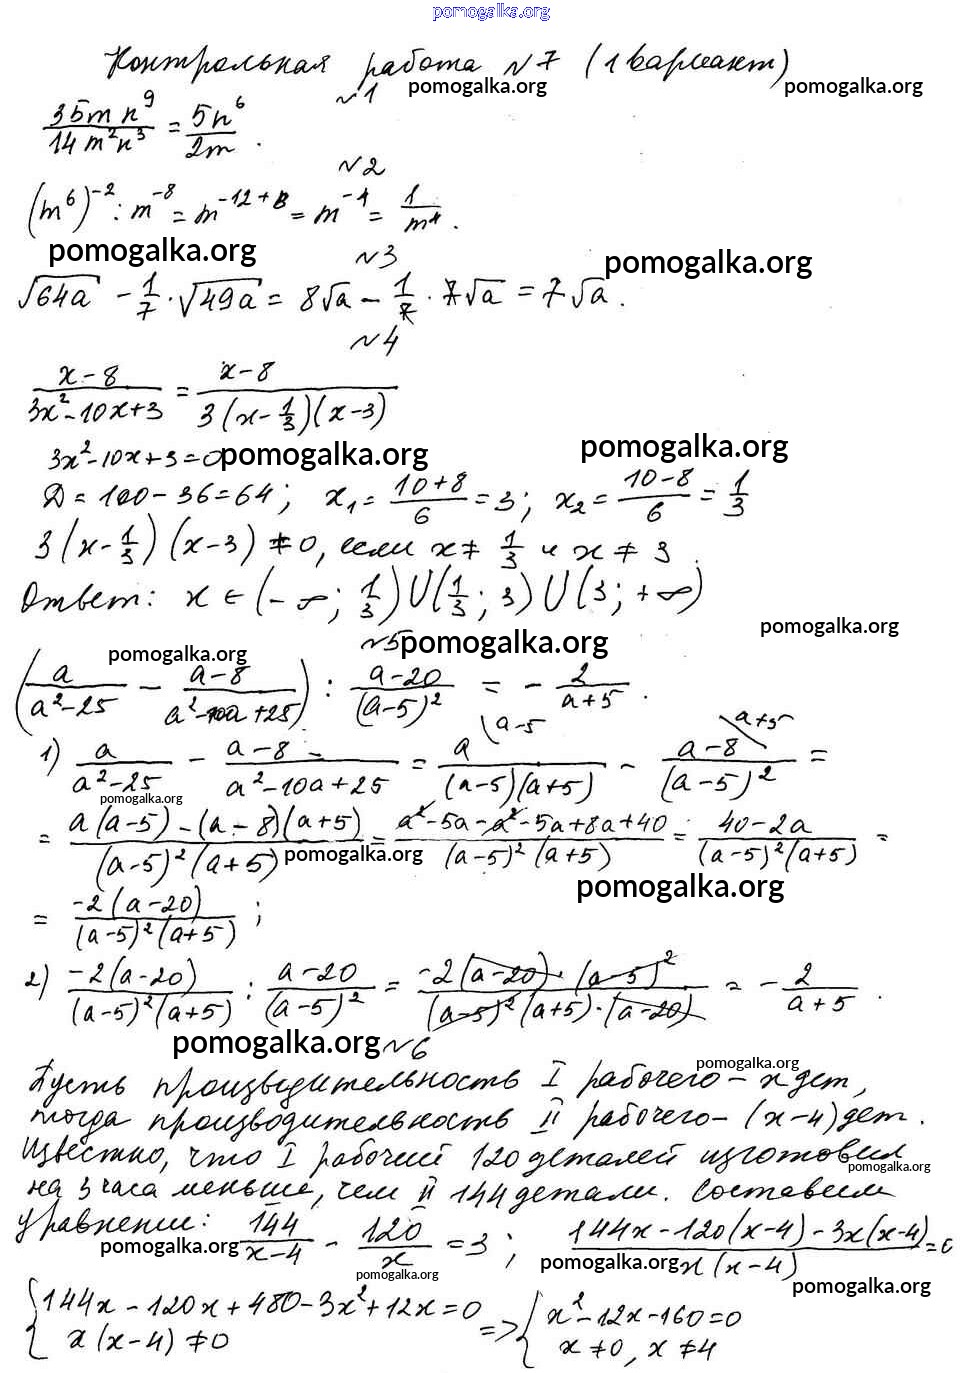 pomogalka.org
Контрольная работа №7 (1 вариант)
pomogalka.org pomogalka.org
№1
35mn^9/14m^2n^3 = 5n^6/2m.
№2
(m^6)^-2 : m^-8 = m^-12+8 = m^-4 = 1/m^4.
pomogalka.org
№3
pomogalka.org
√64a - 1/7 · √49a = 8√a - 1/7 · 7√a = 7√a.
№4
x-8/3x^2-10x+3 = x-8/3(x-1/3)(x-3)
3x^2-10x+3=0
pomogalka.org pomogalka.org
D = 100-36=64; x1 = 10+8/6 = 3; x2 = 10-8/6 = 1/3
3(x-1/3)(x-3) ≠ 0, если x ≠ 1/3 и x ≠ 3.
Ответ: x ∈ (-∞; 1/3) U (1/3; 3) U (3; +∞)
pomogalka.org
№5
pomogalka.org
pomogalka.org
(a/a^2-25 - a-8/a^2-10a+25) : a-20/(a-5)^2 = - 2/a+5.
1) a/a^2-25 - a-8/a^2-10a+25 = a\a-5/(a-5)(a+5) - a-8\a+5/(a-5)^2 =
pomogalka.org
= a(a-5)-(a-8)(a+5)/(a-5)^2(a+5) = a^2-5a-a^2-5a+8a+40/(a-5)^2(a+5) = 40-2a/(a-5)^2(a+5) =
pomogalka.org
pomogalka.org
= -2(a-20)/(a-5)^2(a+5);
2) -2(a-20)/(a-5)^2(a+5) : a-20/(a-5)^2 = -2(a-20)·(a-5)^2/(a-5)^2(a+5)·(a-20) = - 2/a+5.
pomogalka.org
№6
pomogalka.org
Пусть производительность I рабочего - x дет,
тогда производительность II рабочего - (x-4) дет.
Известно, что I рабочий 120 деталей изготовил
pomogalka.org
на 3 часа меньше, чем II 144 детали. Составим
уравнение: 144/x-4 - 120/x = 3; 144x-120(x-4)-3x(x-4)/x(x-4) = 0
pomogalka.org pomogalka.org
pomogalka.org pomogalka.org
{144x-120x+480-3x^2+12x=0 => {x^2-12x-160=0
x(x-4) ≠ 0 x ≠ 0, x ≠ 4